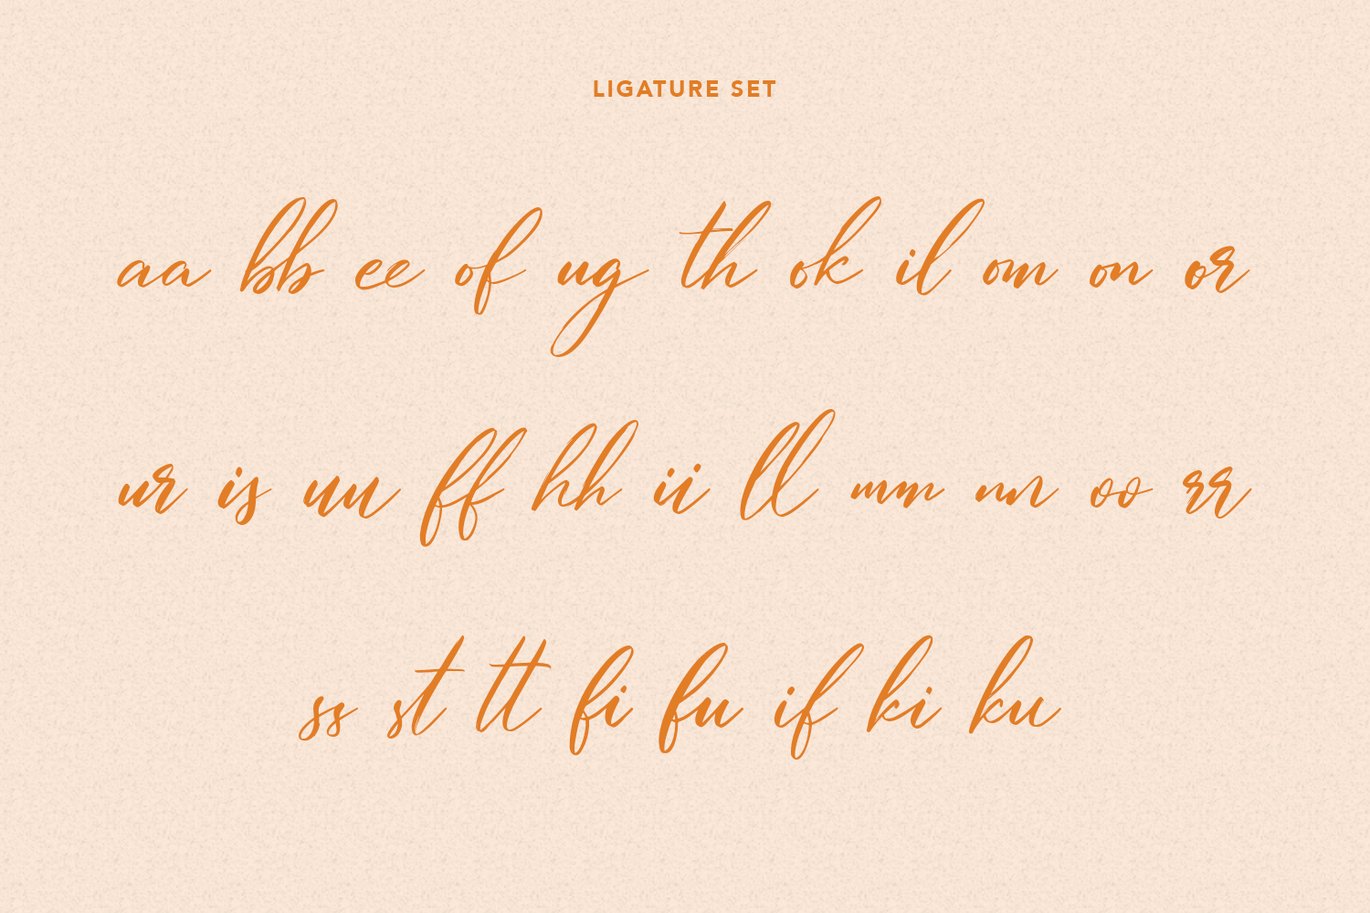 LIGATURE SET
aa bb ee of ug th ok il om on or
ur is uu ff hh ii ll mm nn oo rr
ss st tt fi fu if ki ku